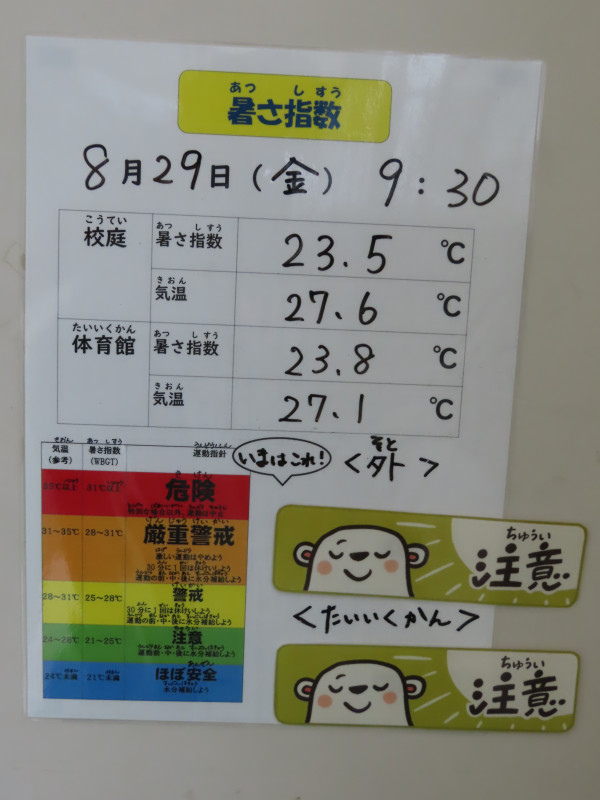 あつ しすう
暑さ指数
8月29日(金) 9:30
こうてい
校庭
あつ しすう
暑さ指数 23.5 ℃
きおん
気温 27.6 ℃
たいいくかん
体育館
あつ しすう
暑さ指数 23.8 ℃
きおん
気温 27.1 ℃
きおん あつ しすう うんどうししん
気温 暑さ指数 運動指針
(参考) (WBGT)
いまはこれ!
そと
<外>
きけん
35℃以上 31℃以上 危険
特別な場合以外、運動は中止
げんじゅうけいかい
31~35℃ 28~31℃ 厳重警戒
激しい運動はやめよう
30分に1回は休けいしよう
運動の前・中・後に水分補給しよう
けいかい
28~31℃ 25~28℃ 警戒
30分に1回は休けいしよう
運動の前・中・後に水分補給しよう
ちゅうい
24~28℃ 21~25℃ 注意
運動前・中・後に水分補給しよう
あんぜん
24℃未満 21℃未満 ほぼ安全
水分補給しよう
ちゅうい
注意
<たいいくかん>
ちゅうい
注意